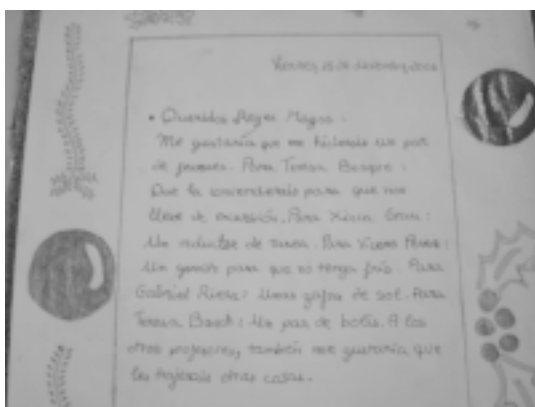 Viernes, 15 de diciembre, 2006
• Queridos Reyes Magos:
Me gustaría que me hicierais un par
de favores. Para Teresa Bosque:
Que la convencierais para que nos
lleve de excursión. Para Xisca Grau:
Un de . Para Vicens Pérez:
Un gorrito para que no tenga frío. Para
Gabriel Riera: Unas gafas de sol. Para
Teresa Bosch: Un par de botas. A los
otros profesores, también me gustaría que
les trajerais otras cosas.